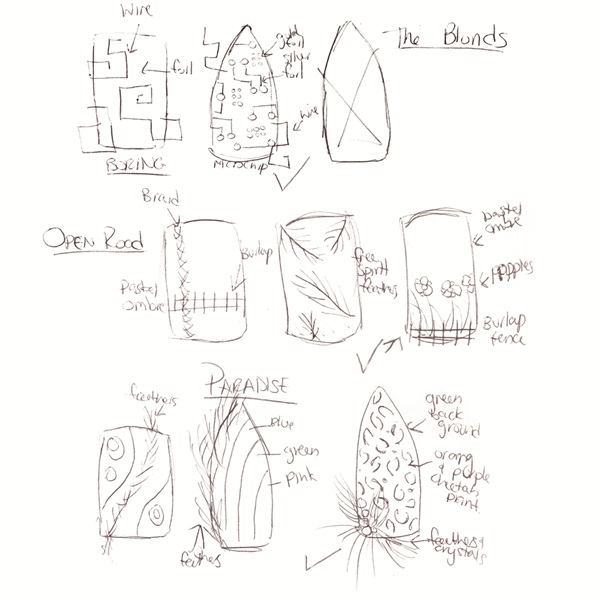 Wire
foil
BORING
gold
foil
silver
foil
wire
MICROCHIP
The Blonds
OPEN ROAD
Braid
Pastel
ombre
Burlap
free
spirit
feathers
pastel
ombre
poppies
Burlap
fence
PARADISE
feathers
Blue
green
Pink
feathers
green
back
ground
orang
& purple
cheetah
print
feathers &
crystals